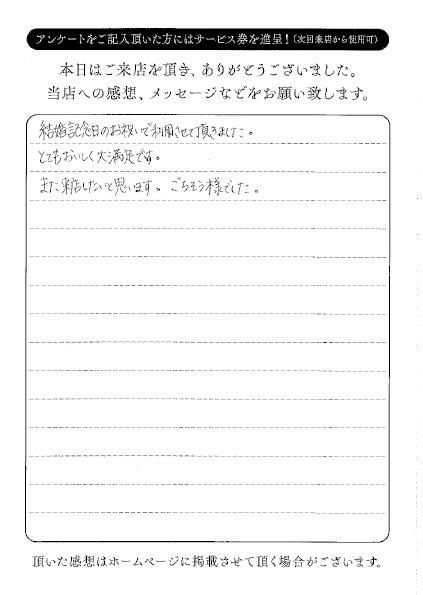 アンケートをご記入頂いた方にはサービス券を進呈！(次回来店から使用可)
本日はご来店を頂き、ありがとうございました。
当店への感想、メッセージなどをお願い致します。
結婚記念日のお祝いで利用させて頂きました。
とてもおいしく大満足です。
また来店したいと思います。ごちそう様でした。
頂いた感想はホームページに掲載させて頂く場合がございます。